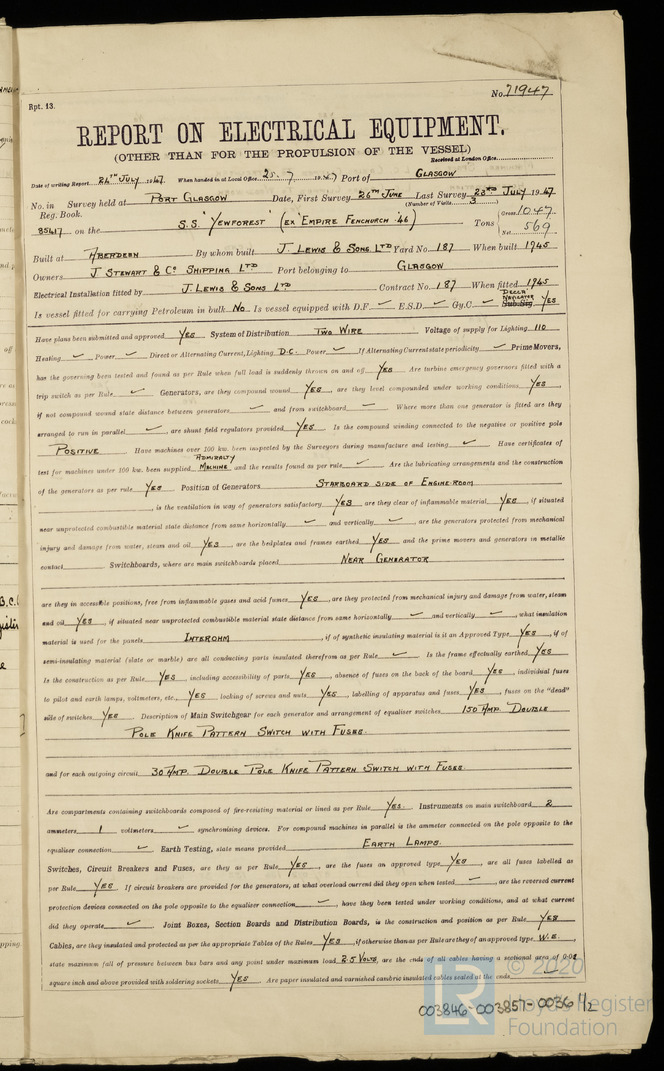 No. 71947
Rpt. 13.
REPORT ON ELECTRICAL EQUIPMENT.
(OTHER THAN FOR THE PROPULSION OF THE VESSEL)
Received at London Office
Date of writing Report 24TH JULY 1947 When handed in at Local Office 25. 7 1947 Port of GLASGOW
No. in Survey held at PORT GLASGOW Date, First Survey 26TH JUNE Last Survey 23RD JULY 1947
Reg. Book. (Number of Visits 3)
85417 on the S.S. "YEWFOREST" (EX "EMPIRE FENCHURCH" '46) Tons Gross 1047 Net 569
Built at ABERDEEN By whom built J. LEWIS & SONS LTD Yard No. 187 When built 1945
Owners J STEWART & CO SHIPPING LTD Port belonging to GLASGOW
Electrical Installation fitted by J. LEWIS & SONS LTD Contract No. 187 When fitted 1945
Is vessel fitted for carrying Petroleum in bulk NO Is vessel equipped with D.F. ✓ E.S.D. ✓ Gy.C. ✓ Sub.Sig DECCA NAVIGATOR YES
Have plans been submitted and approved YES System of Distribution TWO WIRE Voltage of supply for Lighting 110
Heating ✓ Power ✓ Direct or Alternating Current, Lighting D.C. Power ✓ If Alternating Current state periodicity ✓ Prime Movers,
has the governing been tested and found as per Rule when full load is suddenly thrown on and off YES Are turbine emergency governors fitted with a
trip switch as per Rule ✓ Generators, are they compound wound YES, are they level compounded under working conditions YES,
if not compound wound state distance between generators ✓ and from switchboard ✓ Where more than one generator is fitted are they
arranged to run in parallel ✓, are shunt field regulators provided YES Is the compound winding connected to the negative or positive pole
POSITIVE Have machines over 100 kw. been inspected by the Surveyors during manufacture and testing ✓ Have certificates of
test for machines under 100 kw. been supplied ADMIRALTY MACHINE and the results found as per rule ✓ Are the lubricating arrangements and the construction
of the generators as per rule YES Position of Generators STARBOARD SIDE OF ENGINE-ROOM
, is the ventilation in way of generators satisfactory YES are they clear of inflammable material YES, if situated
near unprotected combustible material state distance from same horizontally ✓ and vertically ✓, are the generators protected from mechanical
injury and damage from water, steam and oil YES, are the bedplates and frames earthed YES and the prime movers and generators in metallic
contact Switchboards, where are main switchboards placed NEAR GENERATOR
are they in accessible positions, free from inflammable gases and acid fumes YES, are they protected from mechanical injury and damage from water, steam
and oil YES, if situated near unprotected combustible material state distance from same horizontally ✓ and vertically ✓, what insulation
material is used for the panels INTEROHM, if of synthetic insulating material is it an Approved Type YES, if of
semi-insulating material (slate or marble) are all conducting parts insulated therefrom as per Rule ✓ Is the frame effectually earthed YES
Is the construction as per Rule YES, including accessibility of parts YES, absence of fuses on the back of the board YES, individual fuses
to pilot and earth lamps, voltmeters, etc., YES locking of screws and nuts YES, labelling of apparatus and fuses YES, fuses on the "dead"
side of switches YES Description of Main Switchgear for each generator and arrangement of equaliser switches 150 AMP. DOUBLE
POLE KNIFE PATTERN SWITCH WITH FUSES.
and for each outgoing circuit 30 AMP. DOUBLE POLE KNIFE PATTERN SWITCH WITH FUSES.
Are compartments containing switchboards composed of fire-resisting material or lined as per Rule YES. Instruments on main switchboard 2
ammeters 1 voltmeters ✓ synchronising devices. For compound machines in parallel is the ammeter connected on the pole opposite to the
equaliser connection ✓ Earth Testing, state means provided EARTH LAMPS.
Switches, Circuit Breakers and Fuses, are they as per Rule YES, are the fuses an approved type YES, are all fuses labelled as
per Rule YES If circuit breakers are provided for the generators, at what overload current did they open when tested ✓, are the reversed current
protection devices connected on the pole opposite to the equaliser connection ✓, have they been tested under working conditions, and at what current
did they operate ✓ Joint Boxes, Section Boards and Distribution Boards, is the construction and position as per Rule YES
Cables, are they insulated and protected as per the appropriate Tables of the Rules YES, if otherwise than as per Rule are they of an approved type W.E.,
state maximum fall of pressure between bus bars and any point under maximum load 2.5 VOLTS, are the ends of all cables having a sectional area of 0.01
square inch and above provided with soldering sockets YES. Are paper insulated and varnished cambric insulated cables sealed at the ends
© 2020
Lloyd's Register
Foundation
003846-003857-0036 1/2